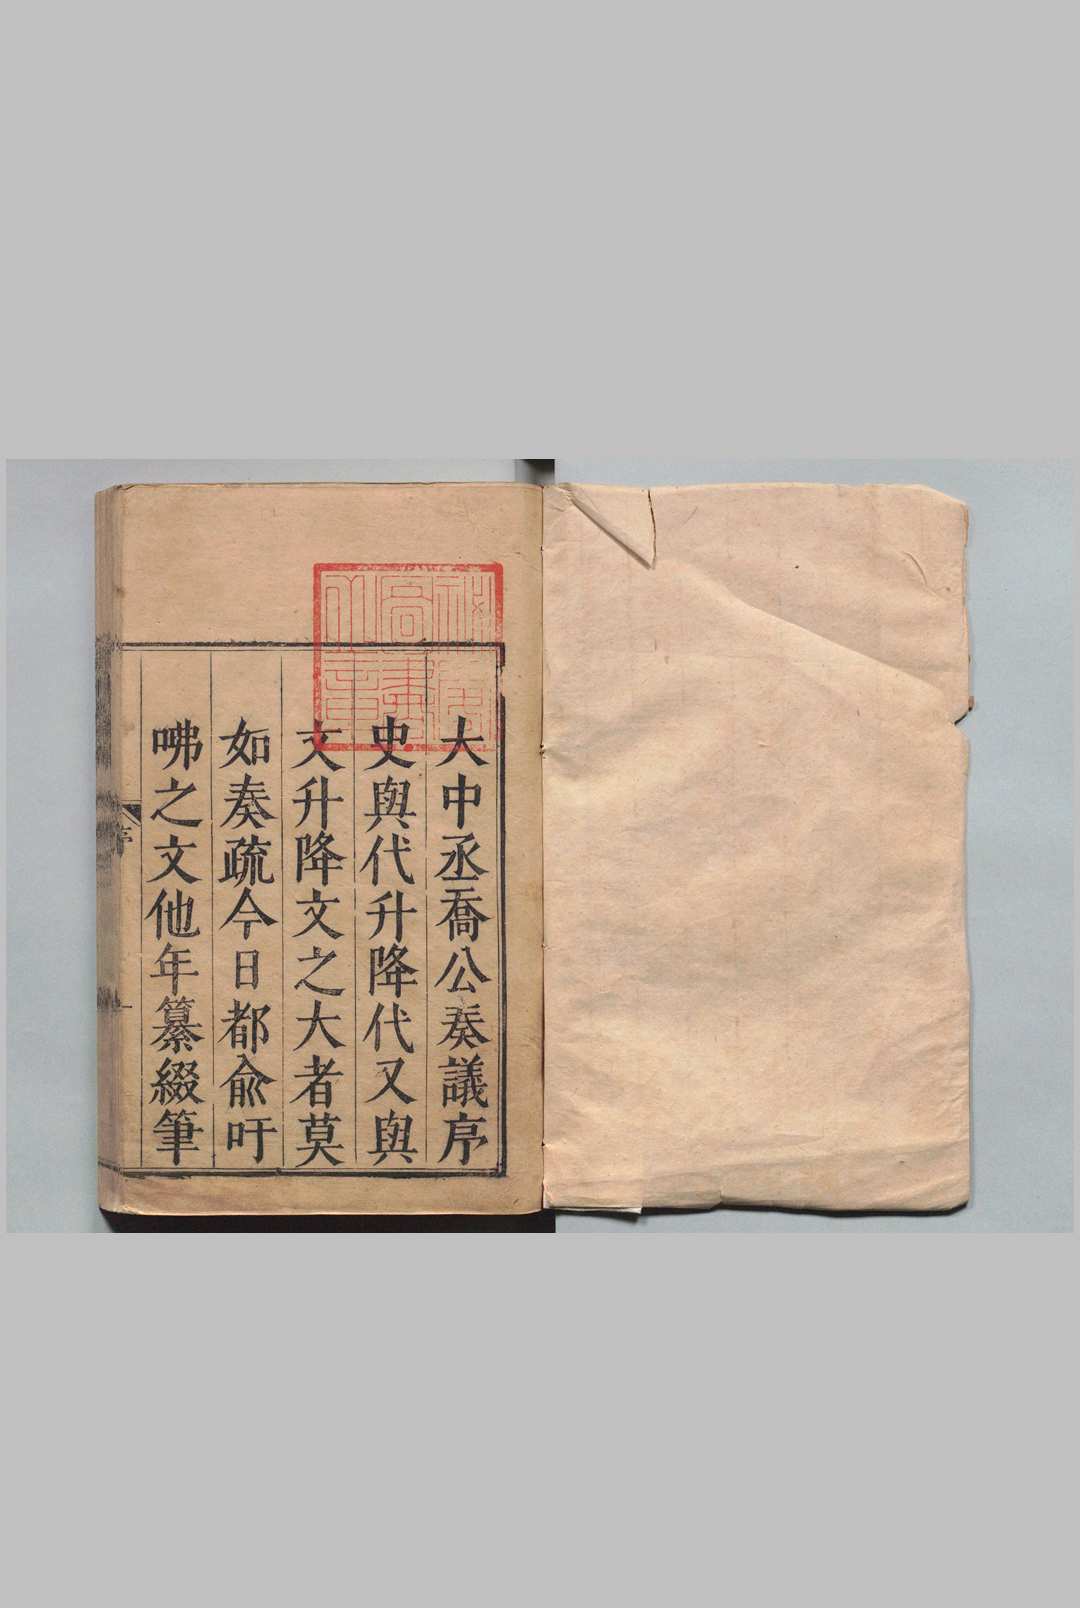 大中丞喬公奏議序
史與代升降代又與
文升降文之大者莫
如奏疏今日都俞吁
咈之文他年纂綴筆
序
一